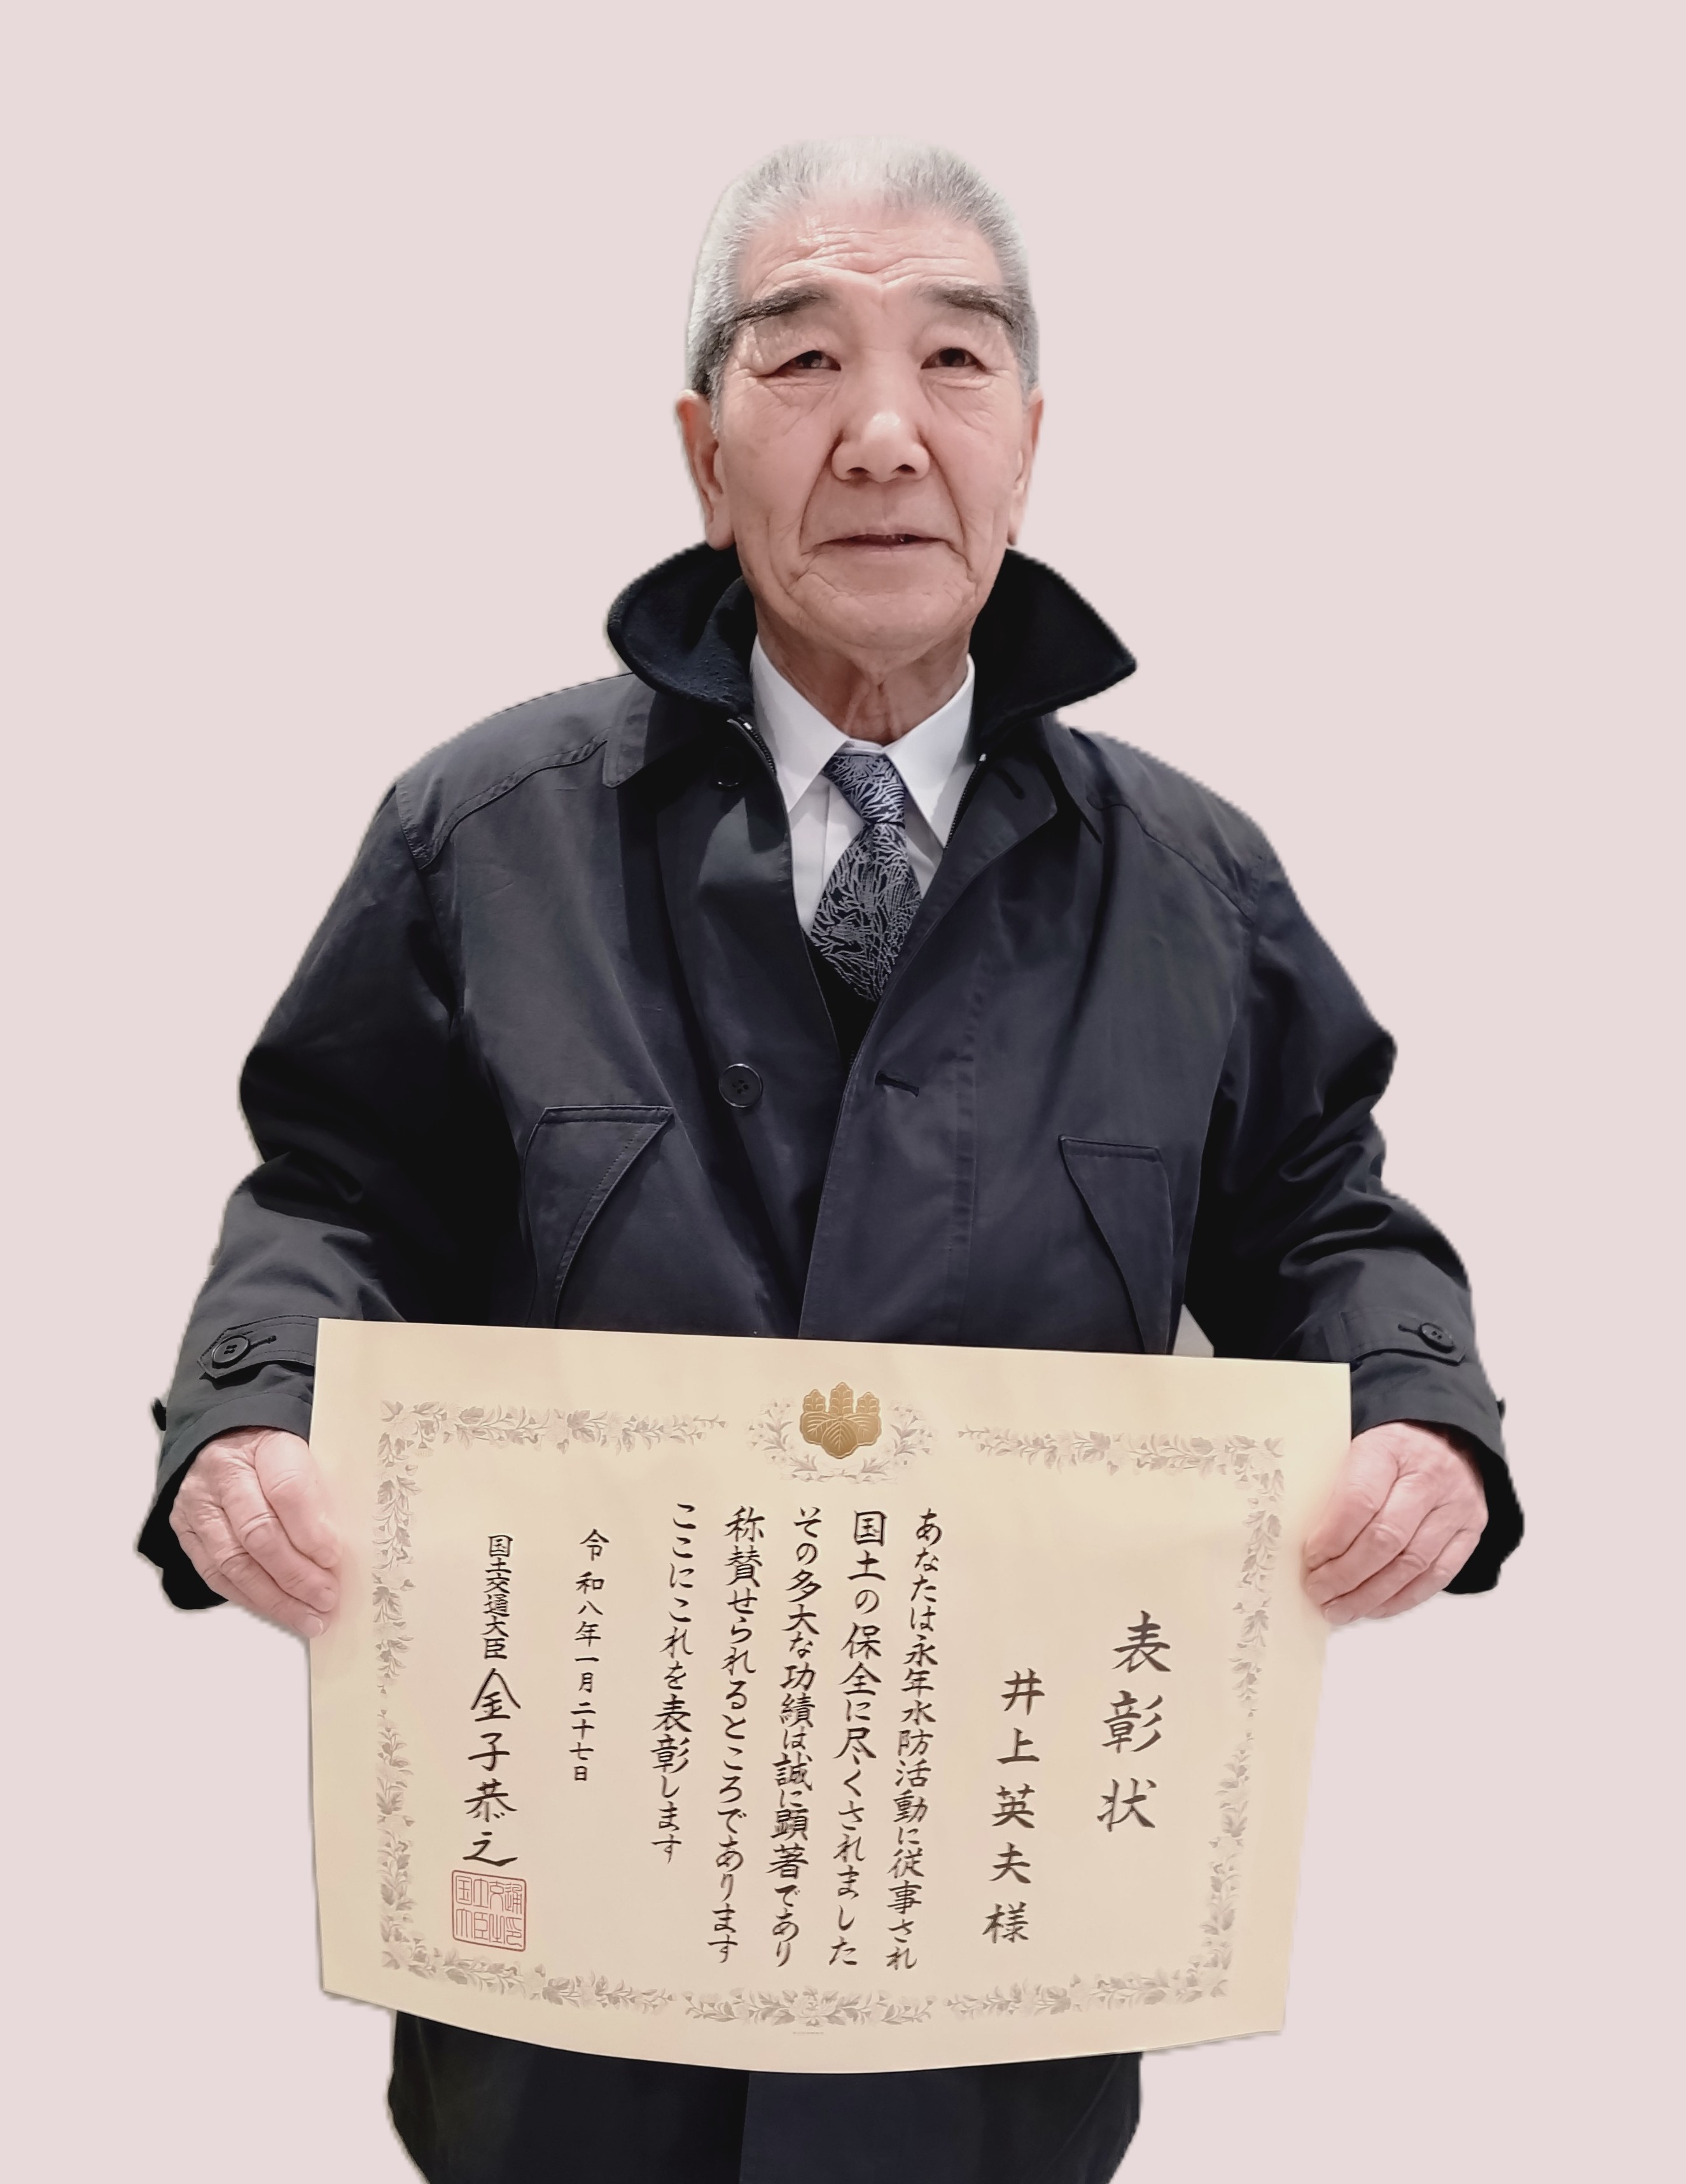 表彰状
井上英夫様
あなたは永年水防活動に従事され
国土の保全に尽くされました
その多大な功績は誠に顕著であり
称賛せられるところであります
ここにこれを表彰します
令和八年一月二十七日
国土交通大臣 金子恭之